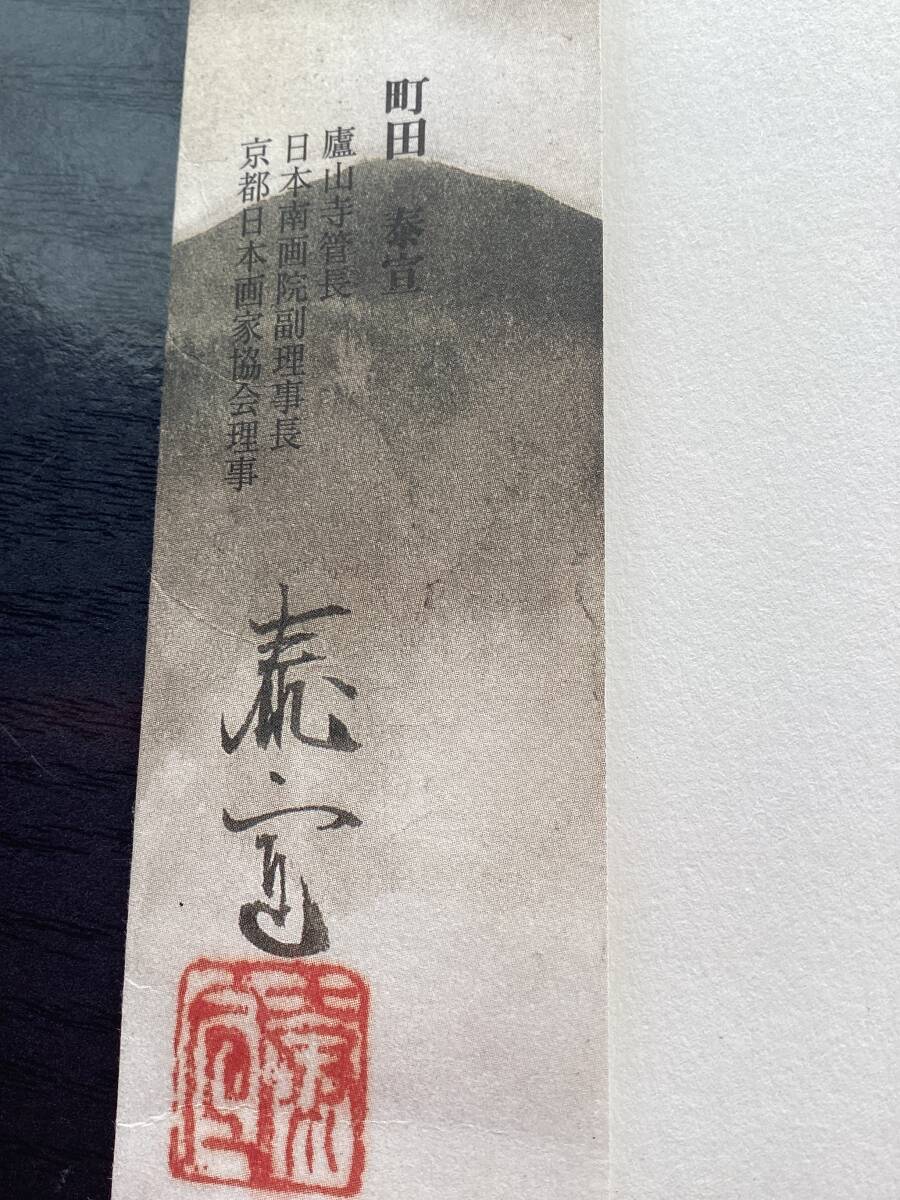 町田 泰宣
廬山寺管長
日本南画院副理事長
京都日本画家協会理事
泰宣
泰宣